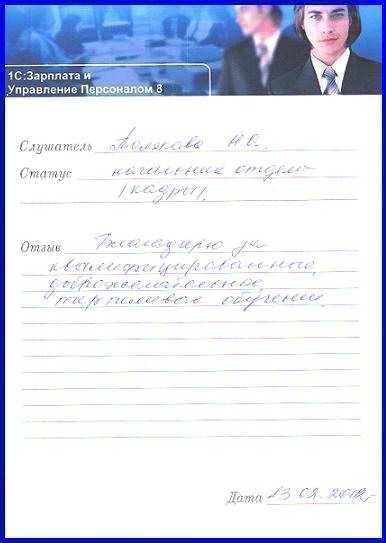 1С:Зарплата и
Управление Персоналом 8
Слушатель Полякова Н.О.
Статус начальник отдела
/кадры/.
Отзыв Благодарю за
квалифицированные,
доброжелательное,
терпеливое обучение.
Дата 13.02.2012г